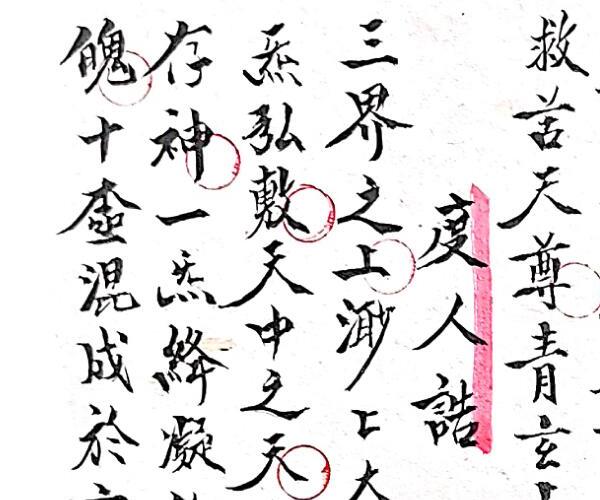 救苦天尊青玄
度人誥
三界之上渺〻大
炁弘敷天中之天
存神一炁絳凝
魄十混成於